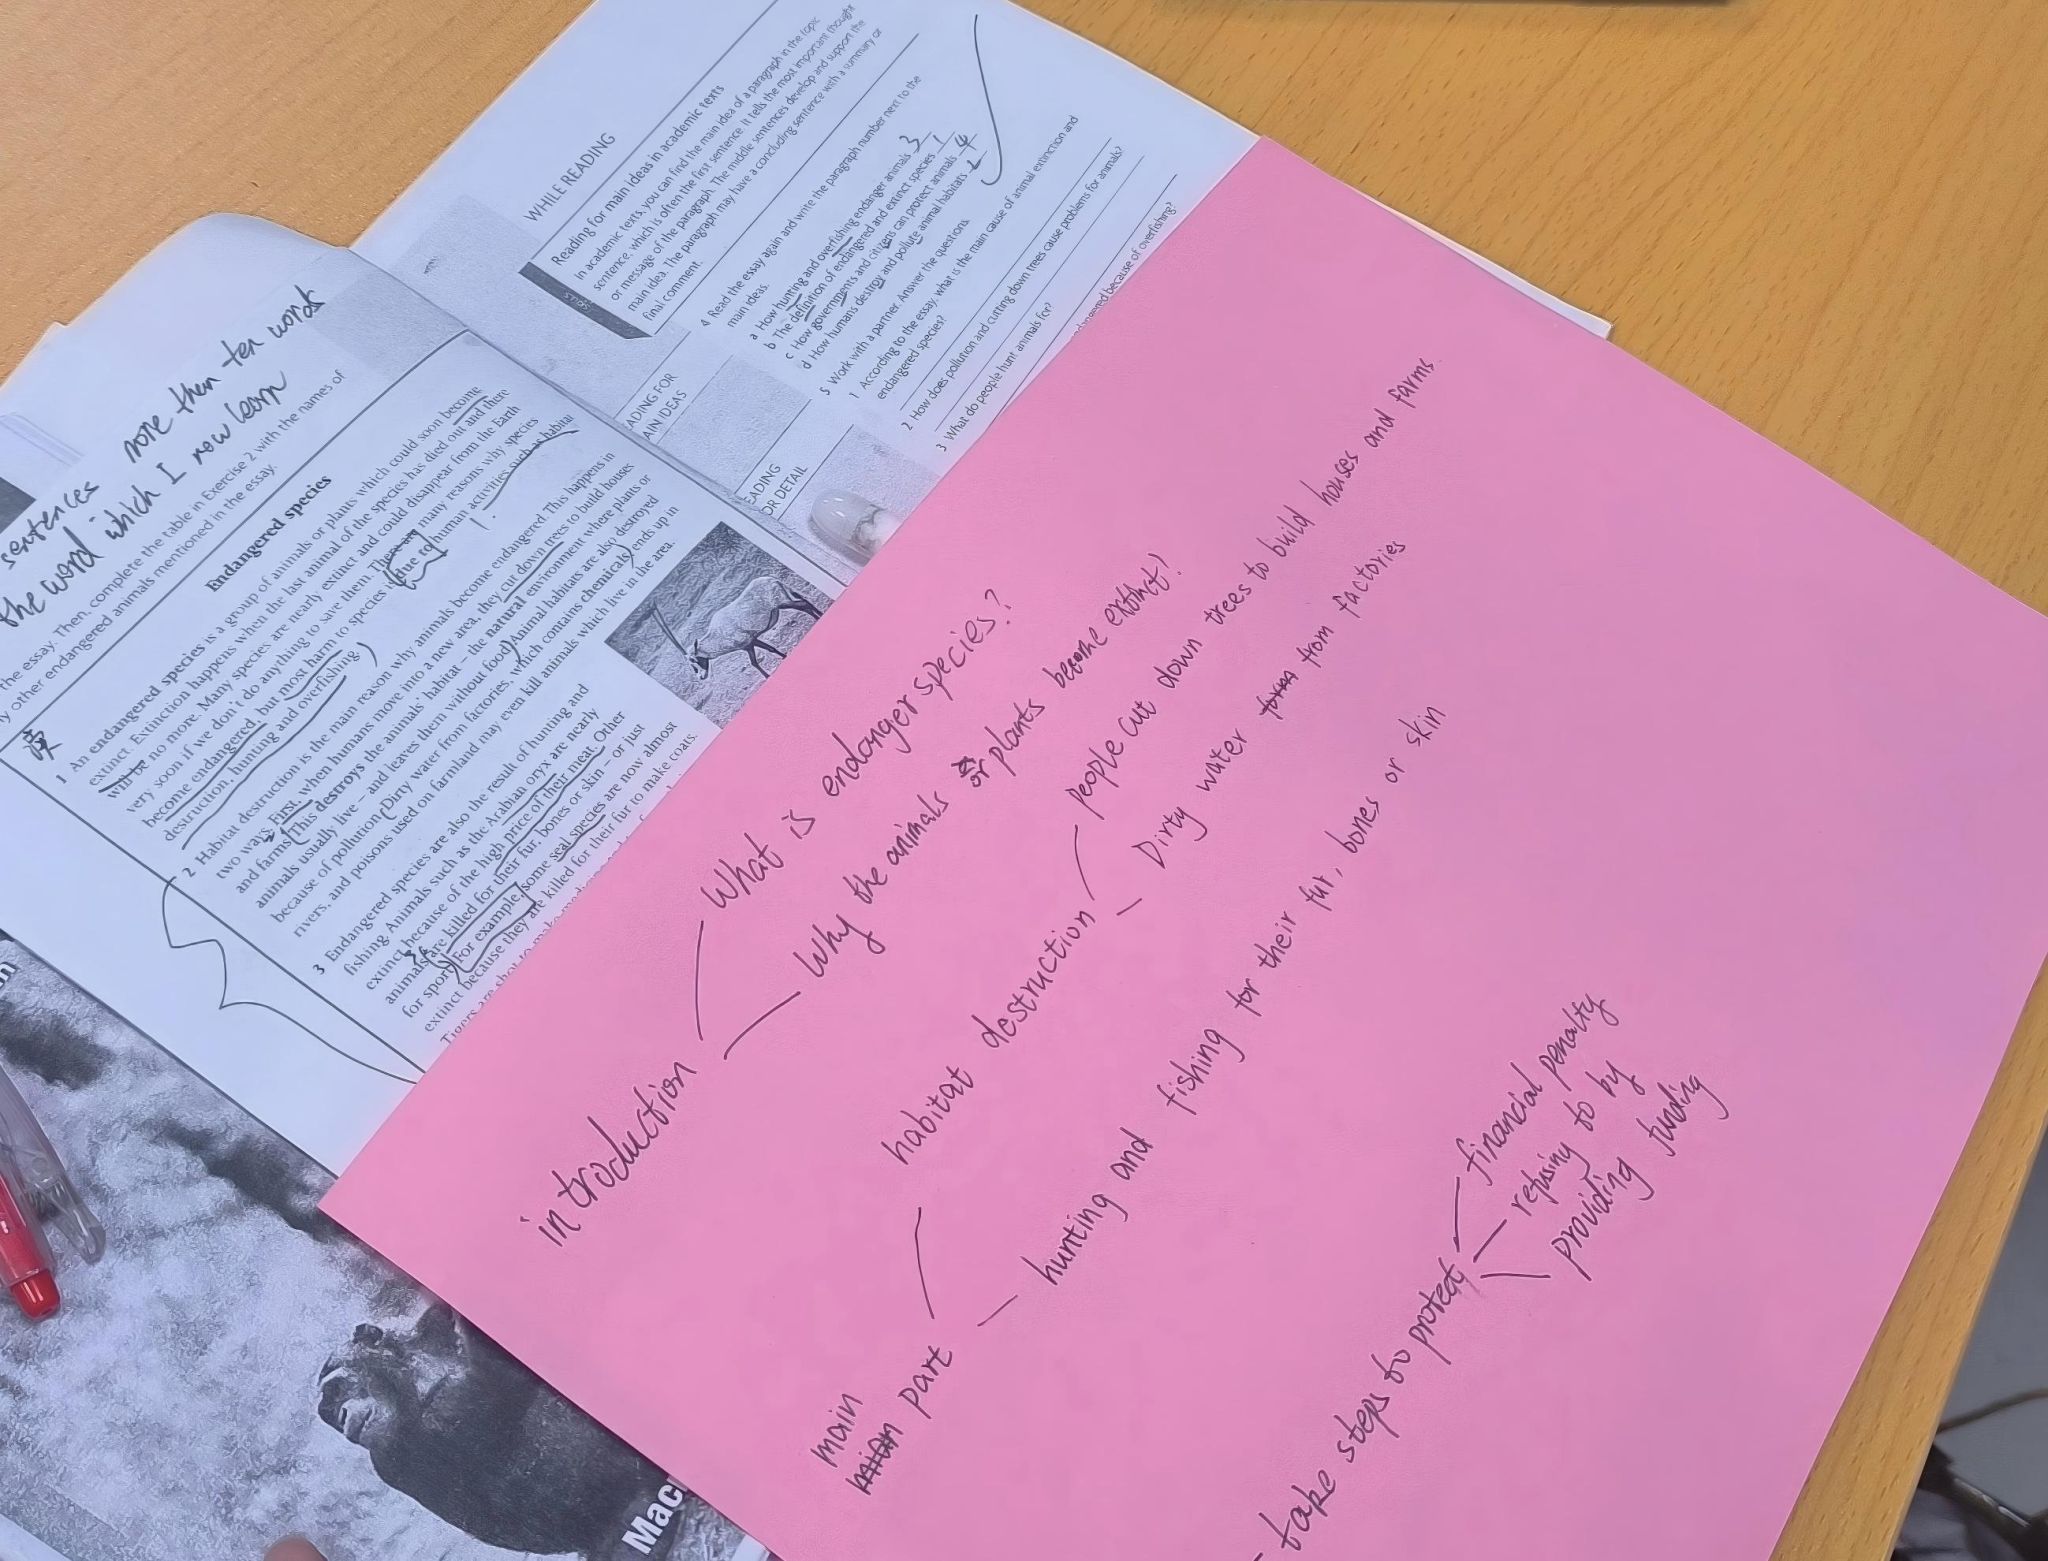 sentences more then ten words
the word which I now learn
the essay. Then, complete the table in Exercise 2 with the names of
other endangered animals mentioned in the essay.
Endangered species
1 An endangered species is a group of animals or plants which could soon become
extinct. Extinction happens when the last animal of the species has died out and there
will be no more. Many species are nearly extinct and could disappear from the Earth
very soon if we don't do anything to save them. There are many reasons why species
become endangered, but most harm to species is due to human activities such as habitat
destruction, hunting and overfishing.
2 Habitat destruction is the main reason why animals become endangered. This happens in
two ways. First, when humans move into a new area, they cut down trees to build houses
and farms. This destroys the animals' habitat – the natural environment where plants or
animals usually live – and leaves them without food. Animal habitats are also destroyed
because of pollution. Dirty water from factories, which contains chemicals, ends up in
rivers, and poisons used on farmland may even kill animals which live in the area.
3 Endangered species are also the result of hunting and
fishing. Animals such as the Arabian oryx are nearly
extinct because of the high price of their meat. Other
animals are killed for their fur, bones or skin – or just
for sport. For example, some seal species are now almost
extinct because they are killed for their fur to make coats.
Tigers are shot to make
WHILE READING
Reading for main ideas in academic texts
In academic texts, you can find the main idea of a paragraph in the topic
sentence, which is often the first sentence. It tells the most important thought
or message of the paragraph. The middle sentences develop and support the
main idea. The paragraph may have a concluding sentence with a summary or
final comment.
4 Read the essay again and write the paragraph number next to the
main ideas.
a How hunting and overfishing endanger animals 3
b The definition of endangered and extinct species 1
c How governments and citizens can protect animals 4
d How humans destroy and pollute animal habitats 2
5 Work with a partner. Answer the questions.
1 According to the essay, what is the main cause of animal extinction and
endangered species?
2 How does pollution and cutting down trees cause problems for animals?
3 What do people hunt animals for?
endangered because of overfishing?
introduction
What is endanger species?
Why the animals or plants become extinct?
main part
habitat destruction
people cut down trees to build houses and farms.
Dirty water from factories
hunting and fishing for their fur, bones or skin
take steps to protect
financial penalty
refusing to by
providing funding